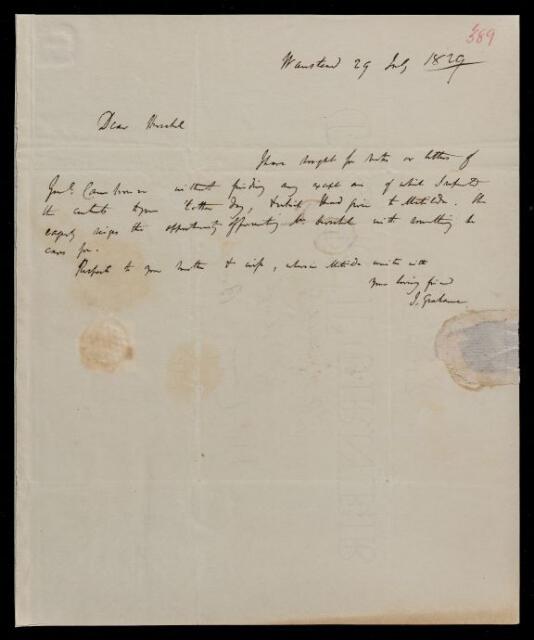 389
Wanstead 29 July 1829
Dear Herschel
I have sought for notes or letters of
Genl. without finding any except one of which I repeated
the contents to you t'other day, & which I had given to Matilda. She
eagerly seizes the opportunity of presenting Mr Herschel with something he
cares for.
Respects to your mother & wife, wherein Matilda unites with
your loving friend
J. Grahame